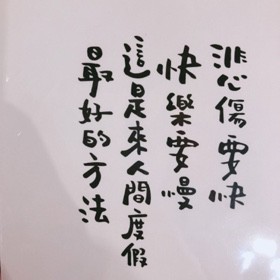 悲傷要快
快樂要慢
這是來人間度假
最好的方法